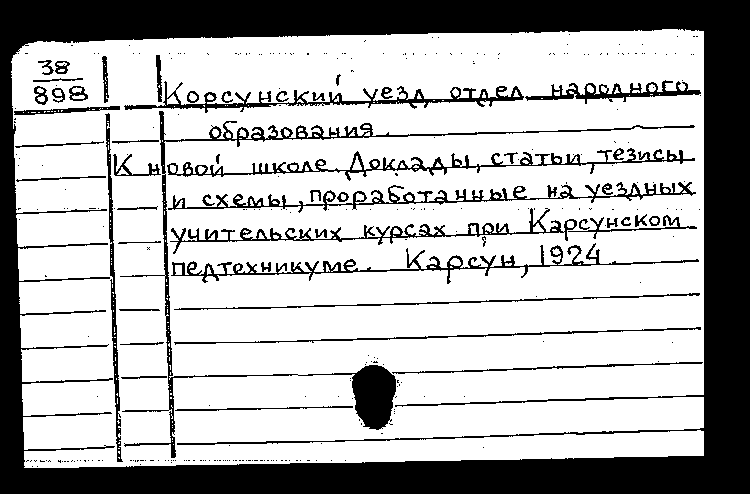 38
898
Корсунский уезд. отдел народного
образования.
К новой школе. Доклады, статьи, тезисы
и схемы, проработанные на уездных
учительских курсах при Карсунском
педтехникуме. Карсун, 1924.